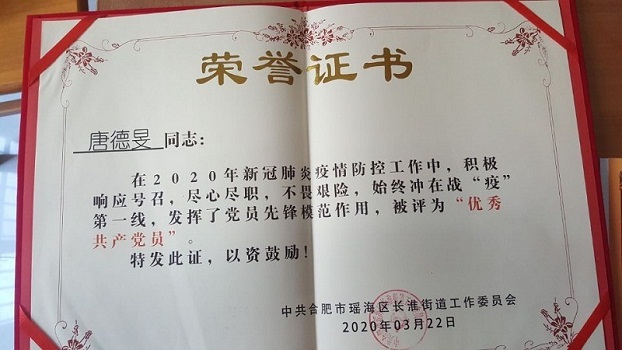 荣誉证书
唐德旻 同志：
在2020年新冠肺炎疫情防控工作中，积极
响应号召，尽心尽职，不畏艰险，始终冲在战“疫”
第一线，发挥了党员先锋模范作用，被评为“优秀
共产党员”。
特发此证，以资鼓励！
中共合肥市瑶海区长淮街道工作委员会
2020年03月22日